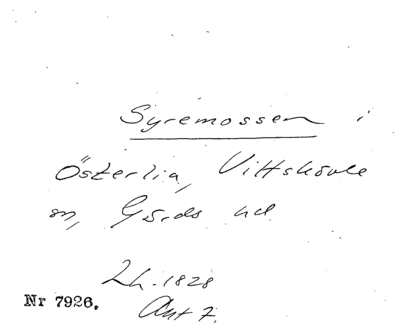 Syremossen i
Österlia, Vittskövle
sn, Gärds hd.
Lh. 1828
Akt 7.
Nr 7926.